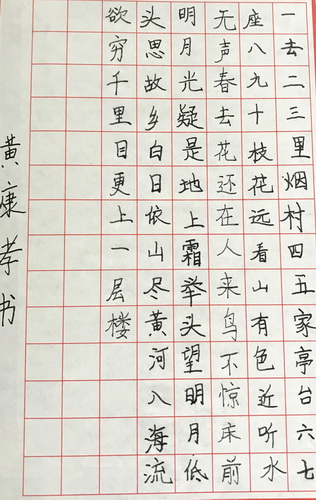 一去二三里烟村四五家亭台六七
座八九十枝花远看山有色近听水
无声春去花还在人来鸟不惊床前
明月光疑是地上霜举头望明月低
头思故乡白日依山尽黄河入海流
欲穷千里目更上一层楼
黄康孝书